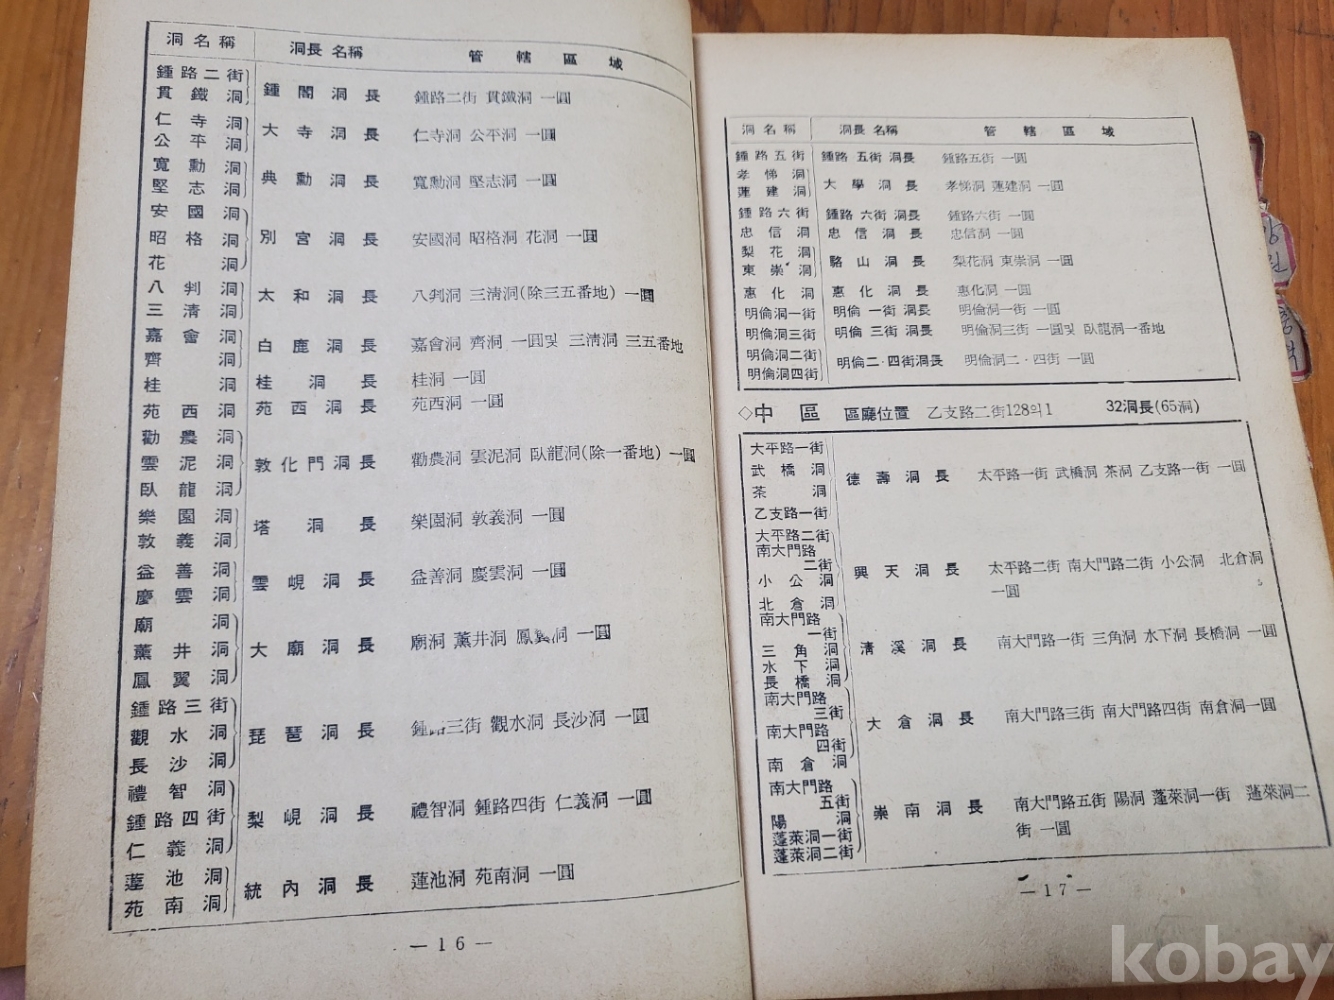 洞名稱 洞長名稱 管轄區域
鍾路二街 貫鐵洞 鍾閣洞長 鍾路二街 貫鐵洞 一圓
仁寺洞 公平洞 大寺洞長 仁寺洞 公平洞 一圓
寬勳洞 堅志洞 典勳洞長 寬勳洞 堅志洞 一圓
安國洞 昭格洞 花洞 別宮洞長 安國洞 昭格洞 花洞 一圓
八判洞 三清洞 太和洞長 八判洞 三淸洞(除三五番地) 一圓
嘉會洞 齊洞 白鹿洞長 嘉會洞 齊洞 一圓및 三淸洞 三五番地
桂洞 桂洞長 桂洞 一圓
苑西洞 苑西洞長 苑西洞 一圓
勸農洞 雲泥洞 臥龍洞 敦化門洞長 勸農洞 雲泥洞 臥龍洞(除一番地) 一圓
樂園洞 敦義洞 塔洞長 樂園洞 敦義洞 一圓
益善洞 慶雲洞 雲峴洞長 益善洞 慶雲洞 一圓
廟洞 薰井洞 鳳翼洞 大廟洞長 廟洞 薰井洞 鳳翼洞 一圓
鍾路三街 觀水洞 長沙洞 琵琶洞長 鍾路三街 觀水洞 長沙洞 一圓
禮智洞 鍾路四街 仁義洞 梨峴洞長 禮智洞 鍾路四街 仁義洞 一圓
蓮池洞 苑南洞 統內洞長 蓮池洞 苑南洞 一圓
— 16 —
洞名稱 洞長名稱 管轄區域
鍾路五街 鍾路五街洞長 鍾路五街 一圓
孝悌洞 蓮建洞 大學洞長 孝悌洞 蓮建洞 一圓
鍾路六街 鍾路六街洞長 鍾路六街 一圓
忠信洞 忠信洞長 忠信洞 一圓
梨花洞 東崇洞 駱山洞長 梨花洞 東崇洞 一圓
惠化洞 惠化洞長 惠化洞 一圓
明倫洞一街 明倫一街洞長 明倫洞一街 一圓
明倫洞三街 明倫三街洞長 明倫洞三街 一圓및 臥龍洞一番地
明倫洞二街 明倫洞四街 明倫二·四街洞長 明倫洞二·四街 一圓
◇中區 區廳位置 乙支路二街128의1 32洞長(65洞)
大平路一街 武橋洞 茶洞 乙支路一街 德壽洞長 太平路一街 武橋洞 茶洞 乙支路一街 一圓
大平路二街 南大門路二街 小公洞 北倉洞 興天洞長 太平路二街 南大門路二街 小公洞 北倉洞
一圓
南大門路一街 三角洞 水下洞 長橋洞 淸溪洞長 南大門路一街 三角洞 水下洞 長橋洞 一圓
南大門路三街 南大門路四街 南倉洞 大倉洞長 南大門路三街 南大門路四街 南倉洞一圓
南大門路五街 陽洞 蓬萊洞一街 蓬萊洞二街 崇南洞長 南大門路五街 陽洞 蓬萊洞一街 蓬萊洞二
街 一圓
— 17 —
kobay